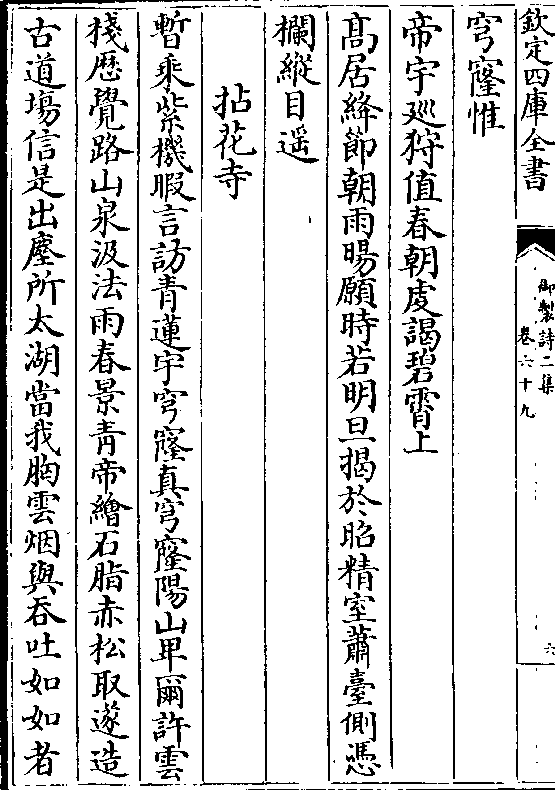 欽定四庫全書
御製詩二集
卷六十九
六
穹窿惟
帝宇巡狩值春朝䖍謁碧霄上
髙居絳節朝雨暘願時若明旦揭於昭精室蕭臺側憑
欄縱目遥
拈花寺
暫乘紫機暇言訪青蓮宇穹窿真穹窿陽山卑爾許雲
棧歴覺路山泉汲法雨春景青帝繪石脂赤松取遂造
古道塲信是出塵所太湖當我胸雲烟與吞吐如如者